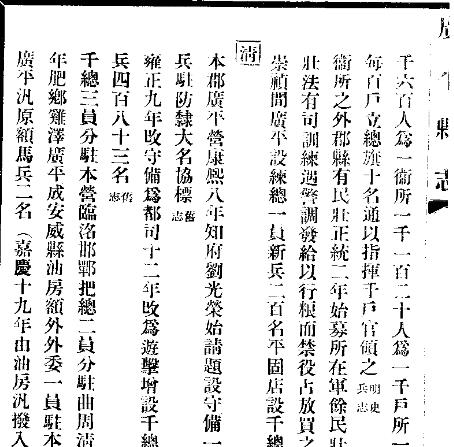 廣平縣志
千六百人爲一衞所一千一百二十人爲一千戶所一
每百戶立總旗十名通以指揮千戶官領之明史兵志
衞所之外郡縣有民壯正統二年始募所在軍餘民壯
壯法有司訓練遇警調發給以行糧而禁役占放買之
崇禎間廣平設練總一員新兵二百名平固店設千總
淸
本郡廣平營康熙八年知府劉光榮始請題設守備一
兵駐防隸大名協標舊志
雍正九年改守備爲都司十二年改爲遊擊增設千總
兵四百八十三名舊志
千總三員分駐本營臨洺邯鄲把總二員分駐曲周淸
年肥鄉雞澤廣平成安威縣油房額外外委一員駐本
廣平汛原額馬兵二名（嘉慶十九年由油房汛撥入